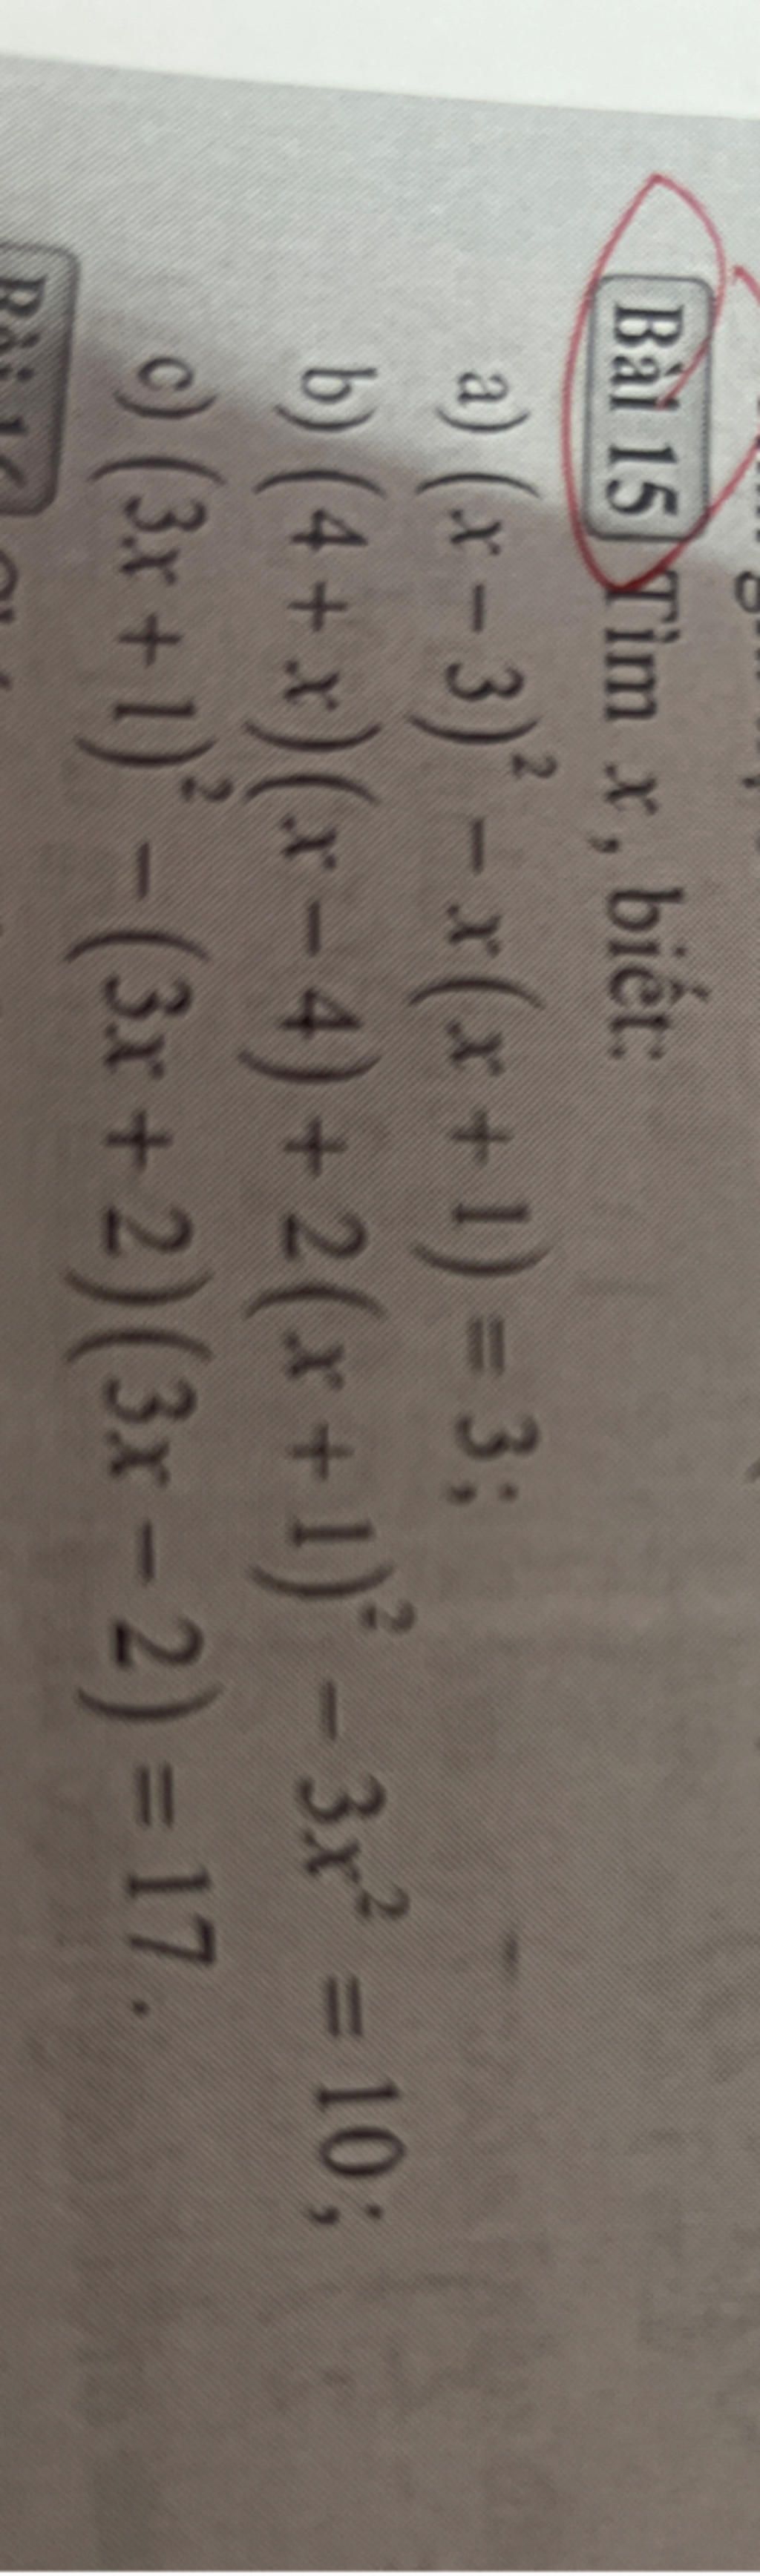 Bài 15 Tìm x, biết:
a) (x − 3)² − x(x + 1) = 3;
b) (4 + x)(x − 4) + 2(x + 1)² − 3x² = 10;
c) (3x + 1)² − (3x + 2)(3x − 2) = 17.